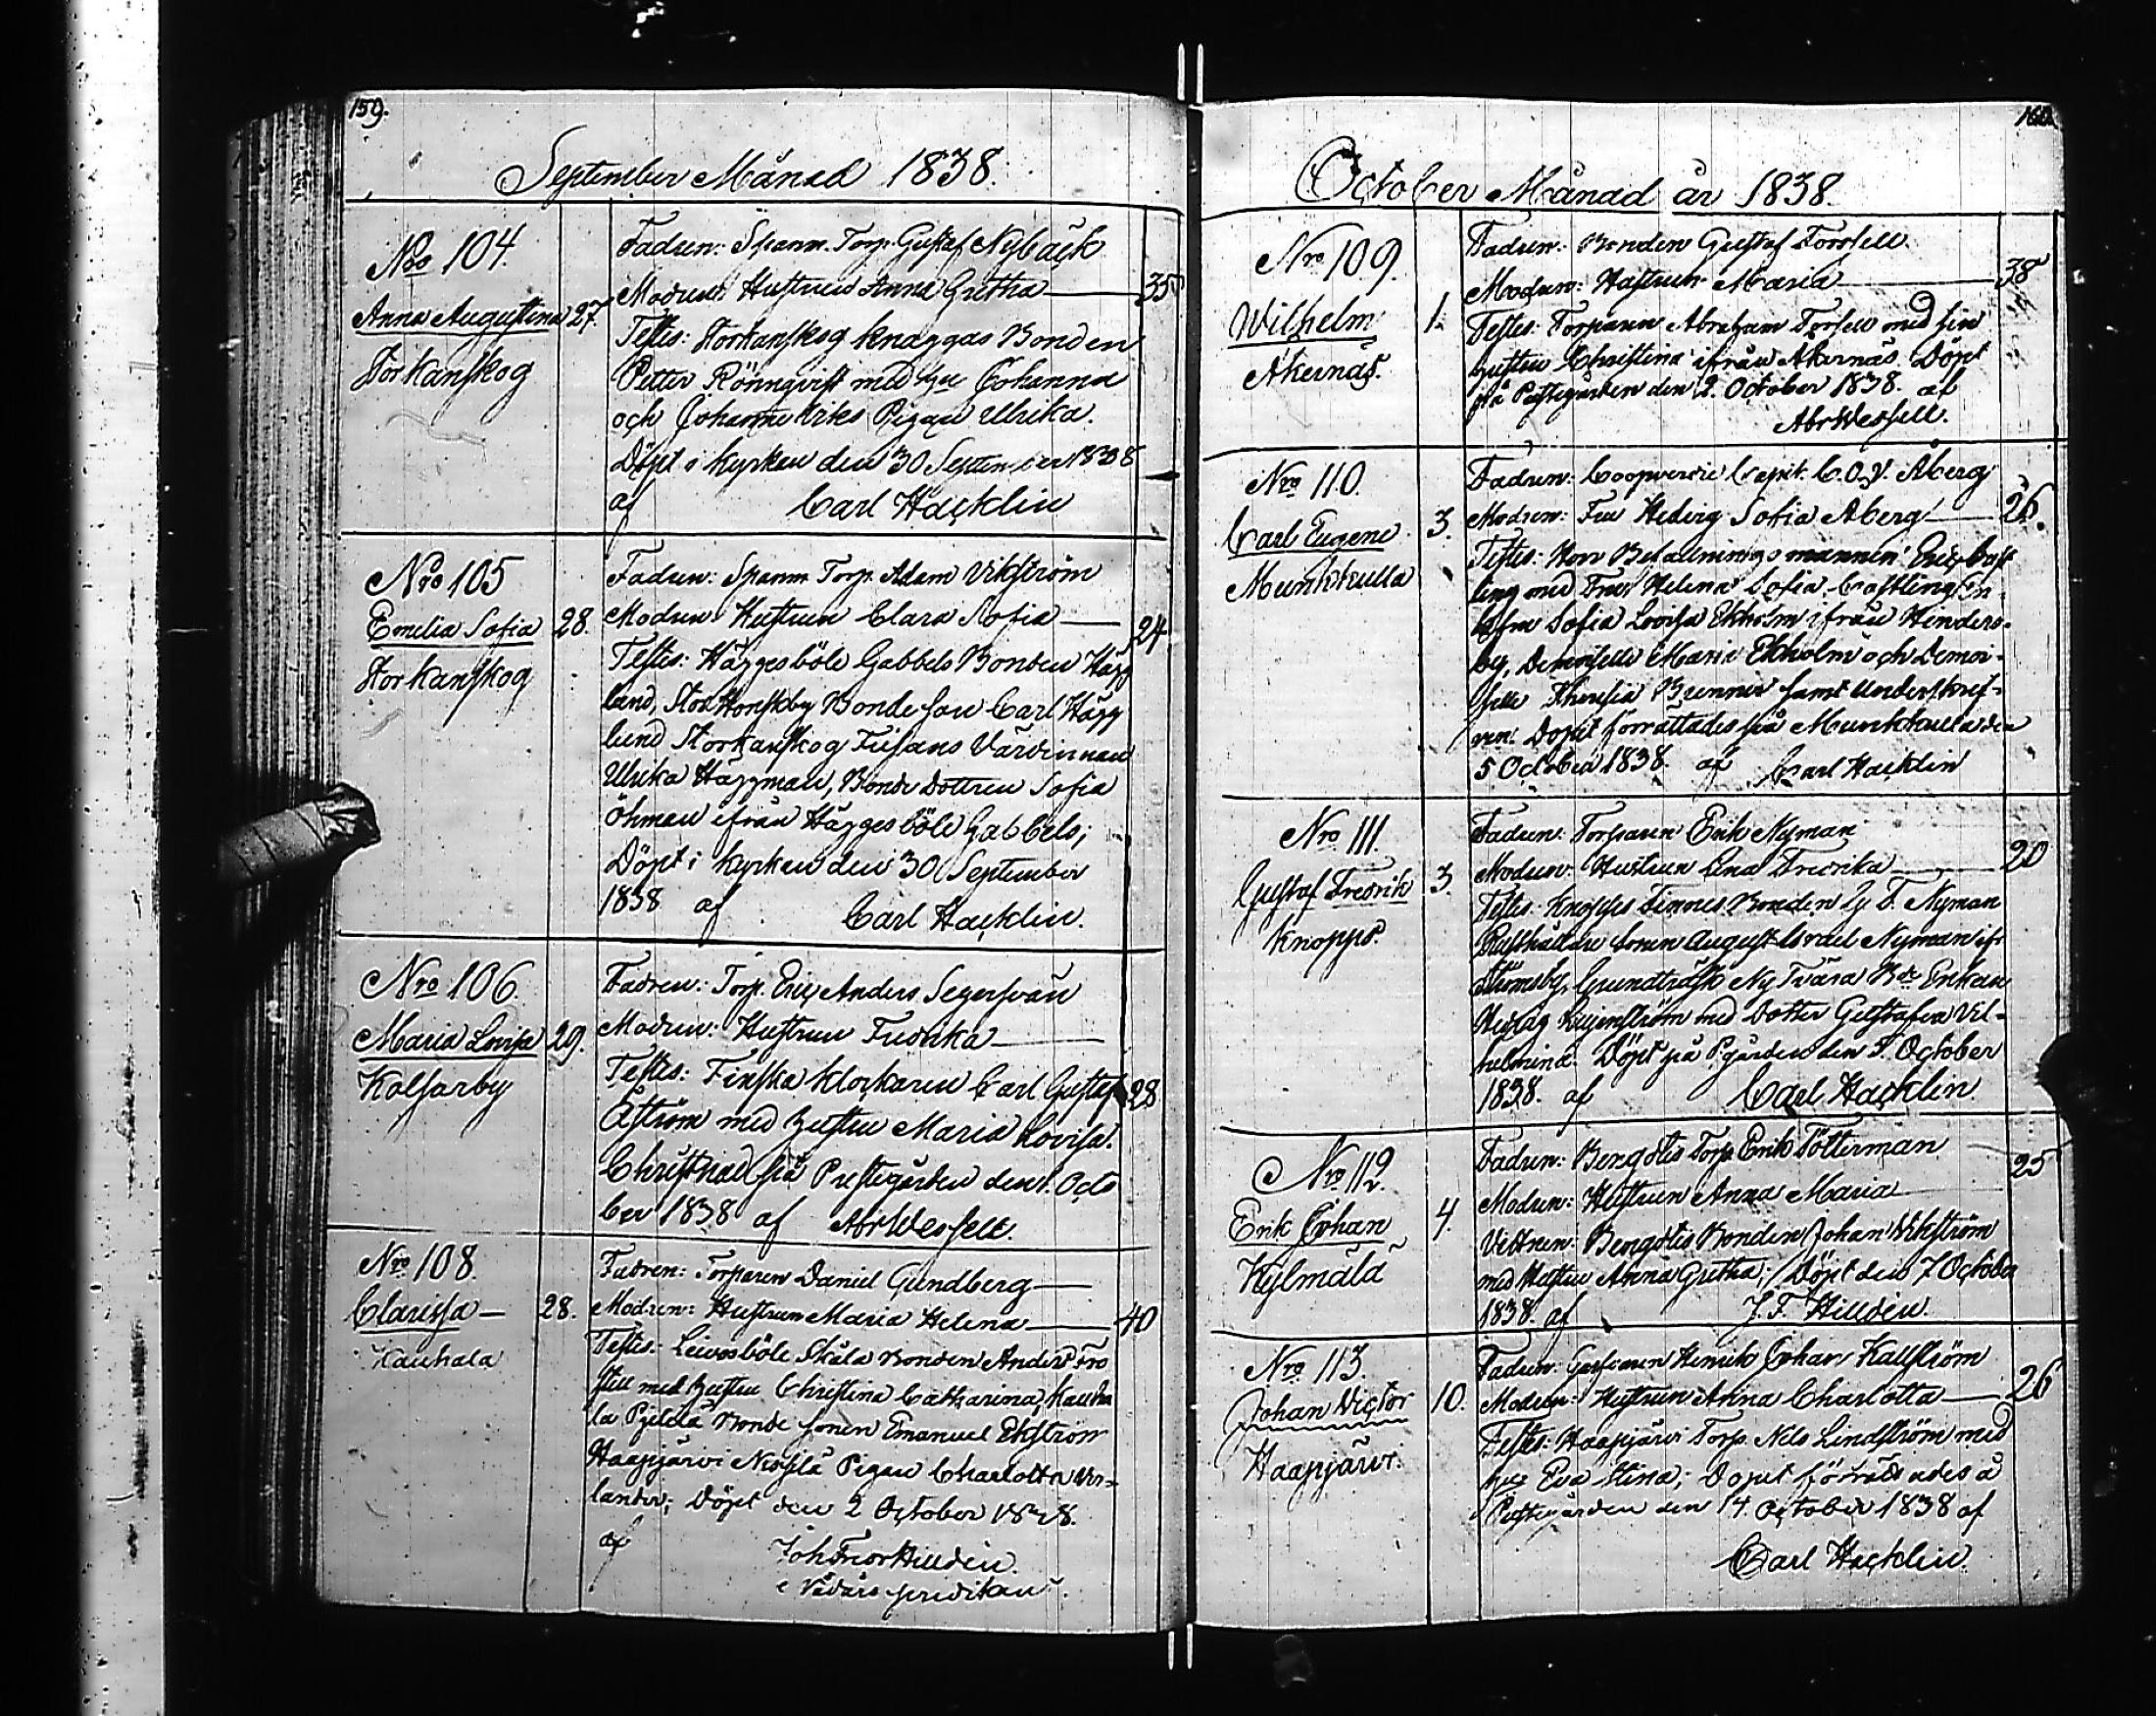 159.
September Månad 1838.
Nro 104.
Anna Augustina 27.
Storkanskog
Fadren: Spanm. Torp. Gustaf Nybäck
Modren: Hustrun Anna Gretha 35
Testes: Storkanskog Knaggas Bonden
Petter Rönnqvist med hu Johanna
och Johanne Eriks Pigan Ulrika.
Döpt i kyrkan den 30 September 1838
af Carl Hacklin
Nro 105
Emelia Sofia 28.
Storkanskog
Fadren: Spanm Torp. Adam Vikström
Modren: Hustrun Clara Sofia 24
Testes: Häggesböle Gabbels Bonden Hägg
lund, Stor Honskby Bonde Son Carl Hägg
lund Storkanskog Värdinnan
Ulrika Häggman, Bonde Dottren Sofia
Öhman ifrån Häggesböle Gabbels;
Döpt i kyrkan den 30 September
1838 af Carl Hacklin.
Nro 106.
Maria Lovisa 29.
Kolsarby
Fadren: Torp. Eric Anders Segersvan
Modren: Hustrun Fredrika
Testes: Finska klockaren Carl Gustaf 28
Åström med hustru Maria Lovisa.
Christnad på Prestegården den 1. Octo
ber 1838 af Abr Wessell.
Nro 108.
Clarissa 28.
Kauhala
Fadren: Torparen Daniel Gundberg
Modren: Hustrun Maria Helena 40
Testes: Leivosböle Skåla Bonden Anders Fro
sten med hustru Christina Catharina, Kauha
la Pjelilä Bonde sonen Emanuel Ekström
Haapjärvi Pigan Charlotta Ver-
lander; Döpt den 2 October 1838.
af Joh Fredr Hillden.
e Vådårs predikan
160
October Månad år 1838.
Nro 109.
Wilhelm 1.
Åkernäs.
Fadren: Bonden Gustaf Forssell.
Modren: Hustrun Maria 38
Testes: Torparen Abraham Forsell med sin
hustru Christina ifrån Åkernäs Döpt
på Prestegården den 2. October 1838. af
Abr Wessell.
Nro 110.
Carl Eugene 3.
Munkkulla
Fadren: Coopverdie Capit. C. O. Åberg
Modren: Fru Hedvig Sofia Åberg 26.
Testes: Herr Befallningsmannen Eric Cast
ling med Fru Helena Sofia Castling
Sofia Lovisa Ekholm ifrån Hinders-
by, Demoiselle Maria Ekholm och Demoi-
selle Theresia Brenner samt Underskref-
ven. Dopet förrättades på Munkkulla den
5 October 1838. af Carl Hacklin
Nro 111.
Gustaf Fredrik 3.
Knopps.
Fadren: Torparen Erik Nyman
Modren: Hustrun Lena Fredrika 20
Testes: Knopps Simons Bonden G. F. Nyman
Rusthållare sonen August Israel Nyman ifr
Strömsby, Grundträsk Ny Tvära Bde Enkan
Hedvig Liljenström med Dotter Gustafva Vil-
helmina. Döpt på Pgården den 5. October
1838. af Carl Hacklin.
Nro 112.
Erik Johan 4.
Kylmälä
Fadren: Bengotis Torp Erik Tötterman 25
Modren: Hustrun Anna Maria
Vittnen: Bengotis Bonden Johan Vikström
med Hustru Anna Gretha; Döpt den 7 October
1838. af J. F. Hillden.
Nro 113.
Johan Victor 10.
Haapjärvi.
Fadren: Torparen Henrik Johan Källström
Modren: Hustrun Anna Charlotta 26
Testes: Haapjärvi Torp. Nils Lindström med
hu Eva Stina; Dopet förrättades å
Prestegården den 14 October 1838 af
Carl Hacklin.